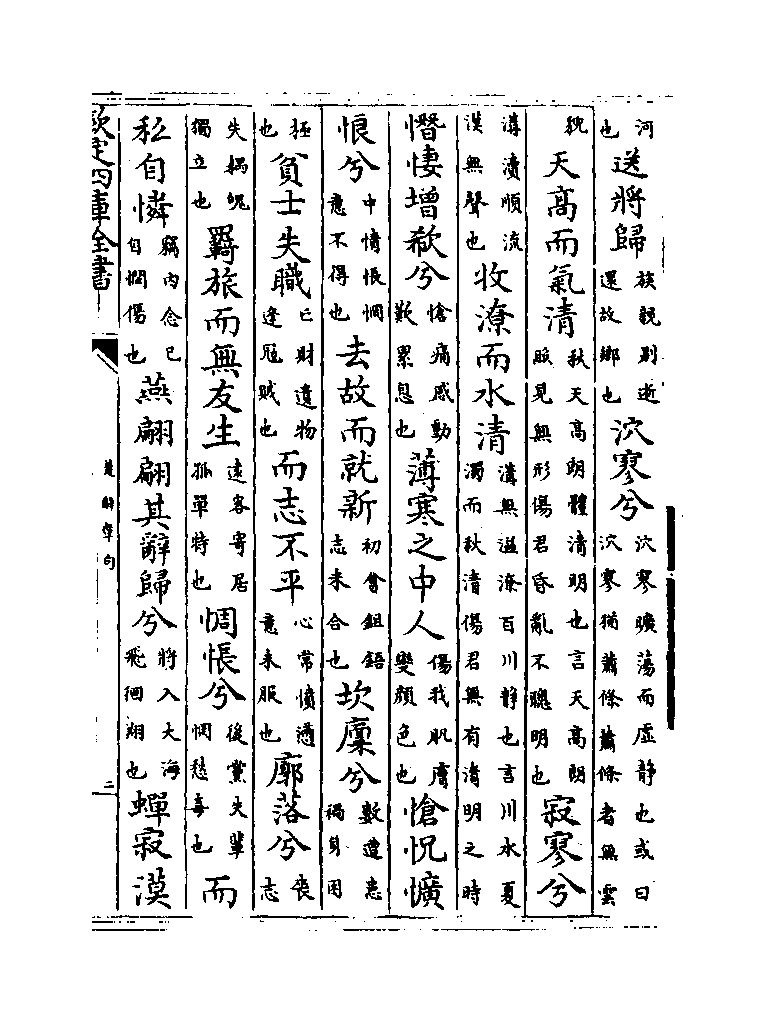 河也送將歸族親别逝還故鄉也泬寥兮泬寥曠蕩而虛静也或曰泬寥猶蕭條蕭條者無雲
貌天高而氣清秋天高朗體清明也言天高朗照見無形傷君昏亂不聰明也寂寥兮
溝瀆順流漠無聲也收潦而水清溝無溢潦百川静也言川水夏濁而秋清傷君無有清明之時
憯悽增欷兮愴痛感動歎累息也薄寒之中人傷我肌膚變顔色也愴怳懭
悢兮中情悵惘意不得也去故而就新初會鉏鋙志未合也坎廩兮數遭患禍身困
極也貧士失職亡財遺物逢寇賊也而志不平心常憤懣意未服也廓落兮喪志
失耦塊獨立也羇旅而無友生遠客寄居孤單特也惆悵兮後黨失輩惘愁毒也而
私自憐竊内念己自憫傷也燕翩翩其辭歸兮將入大海飛徊翔也蟬寂漠
欽定四庫全書
楚辭章句
二